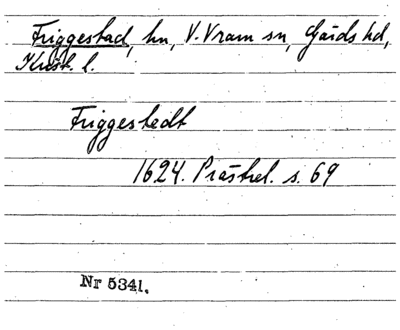 Friggestad, hn, V. Vram sn, Gärds hd,
Krist. l.
Friggestedt
1624. Prästrel. s. 69
Nr 5341.